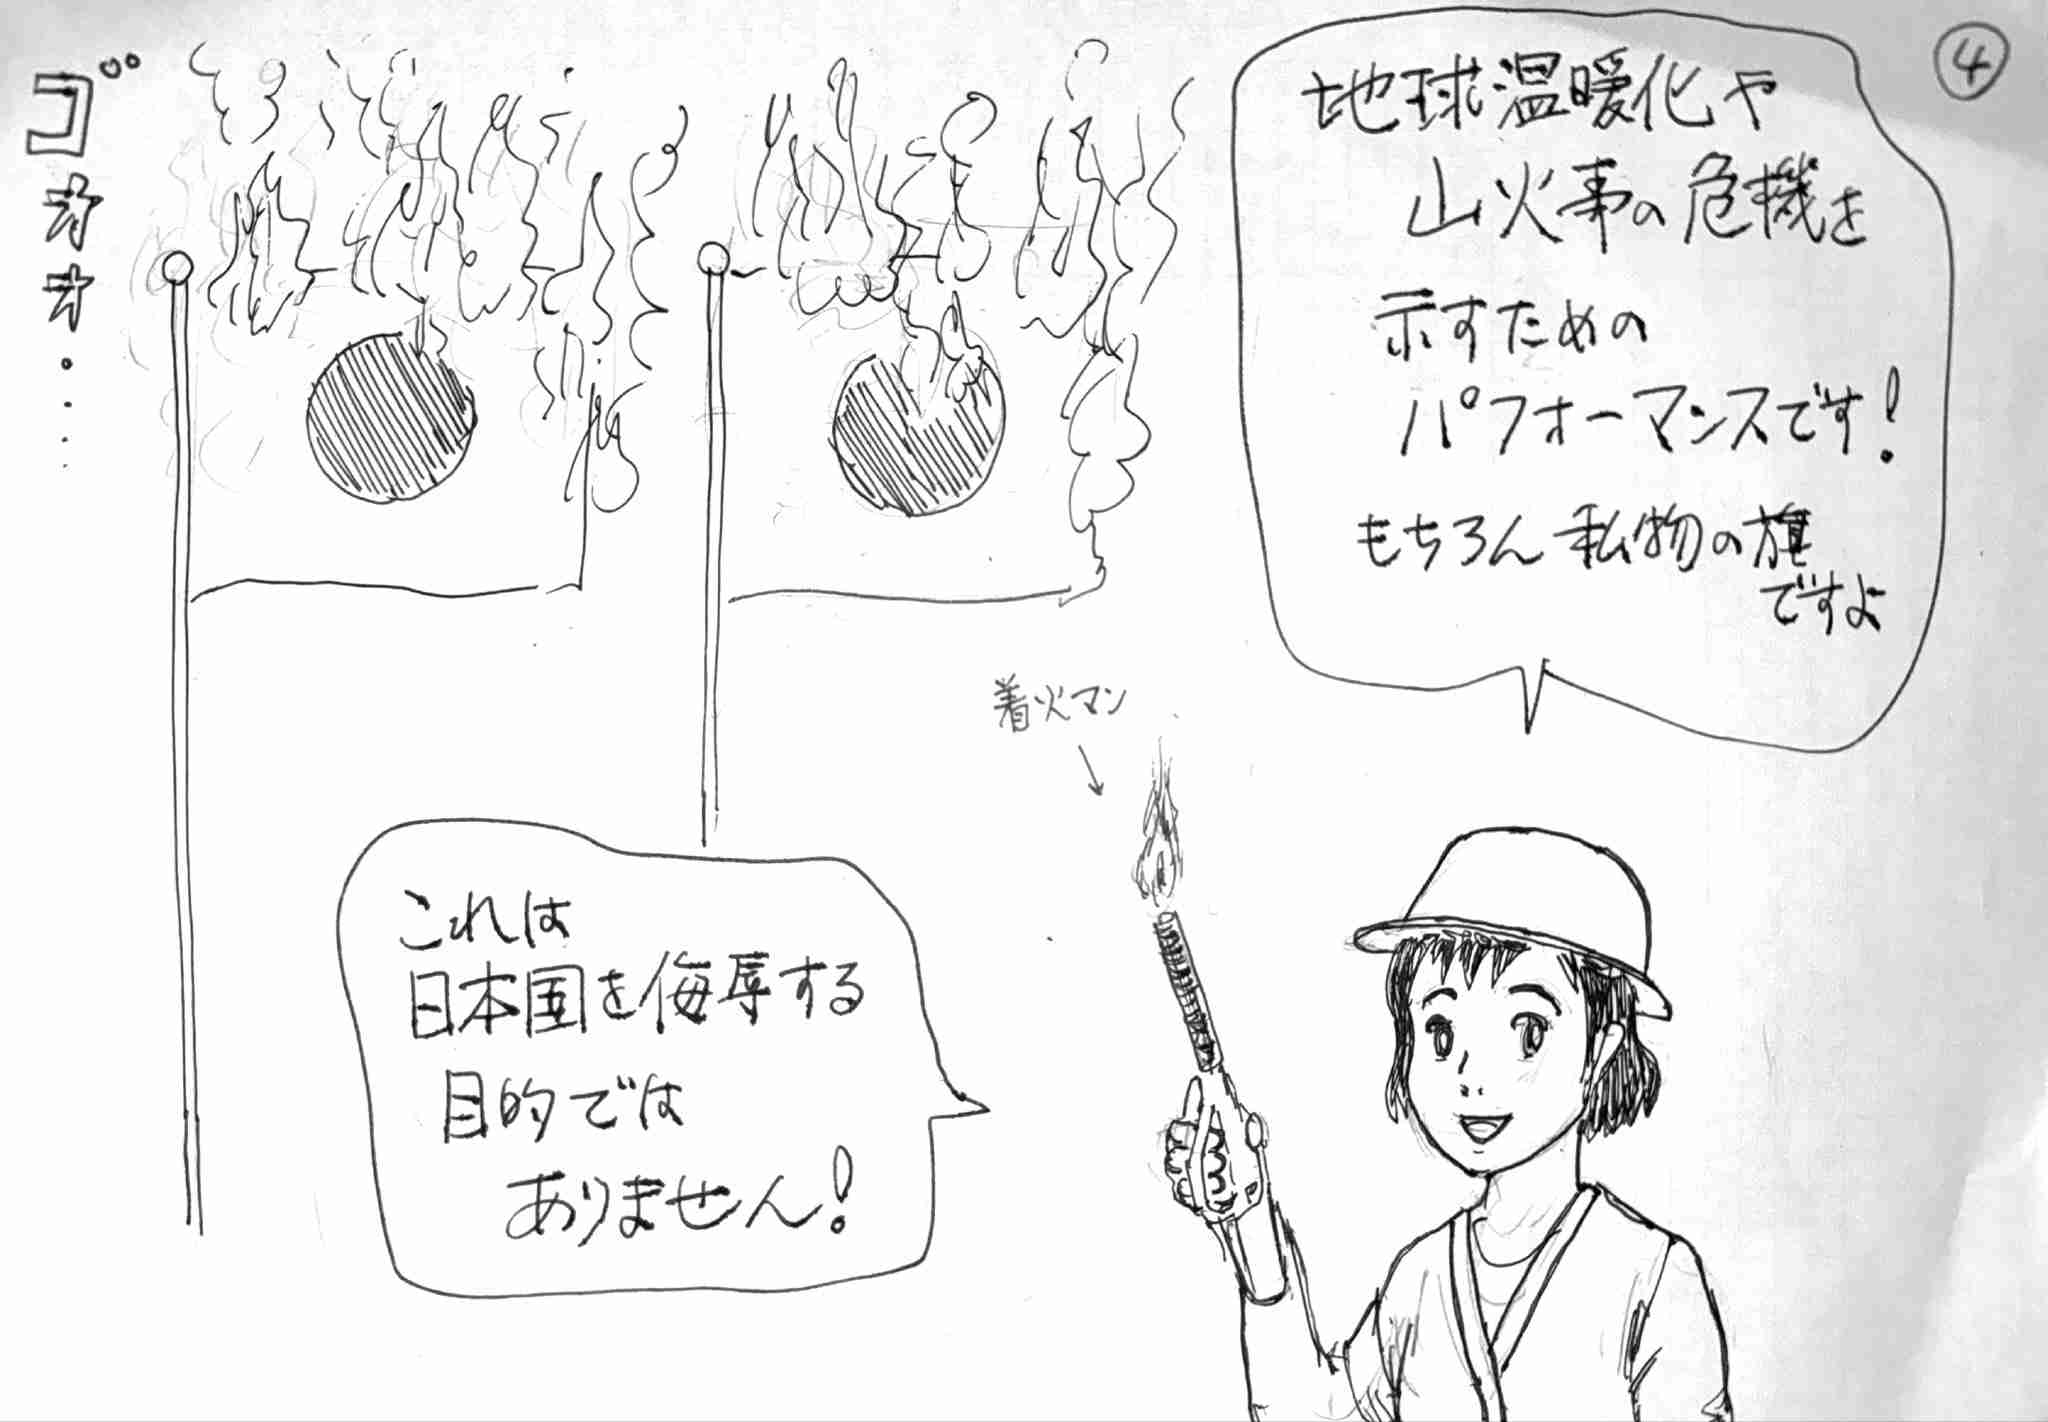 ④
地球温暖化や
山火事の危機を
示すための
パフォーマンスです!
もちろん私物の旗
ですよ
ゴオオ・・・・
着火マン
これは
日本国を侮辱する
目的では
ありません!